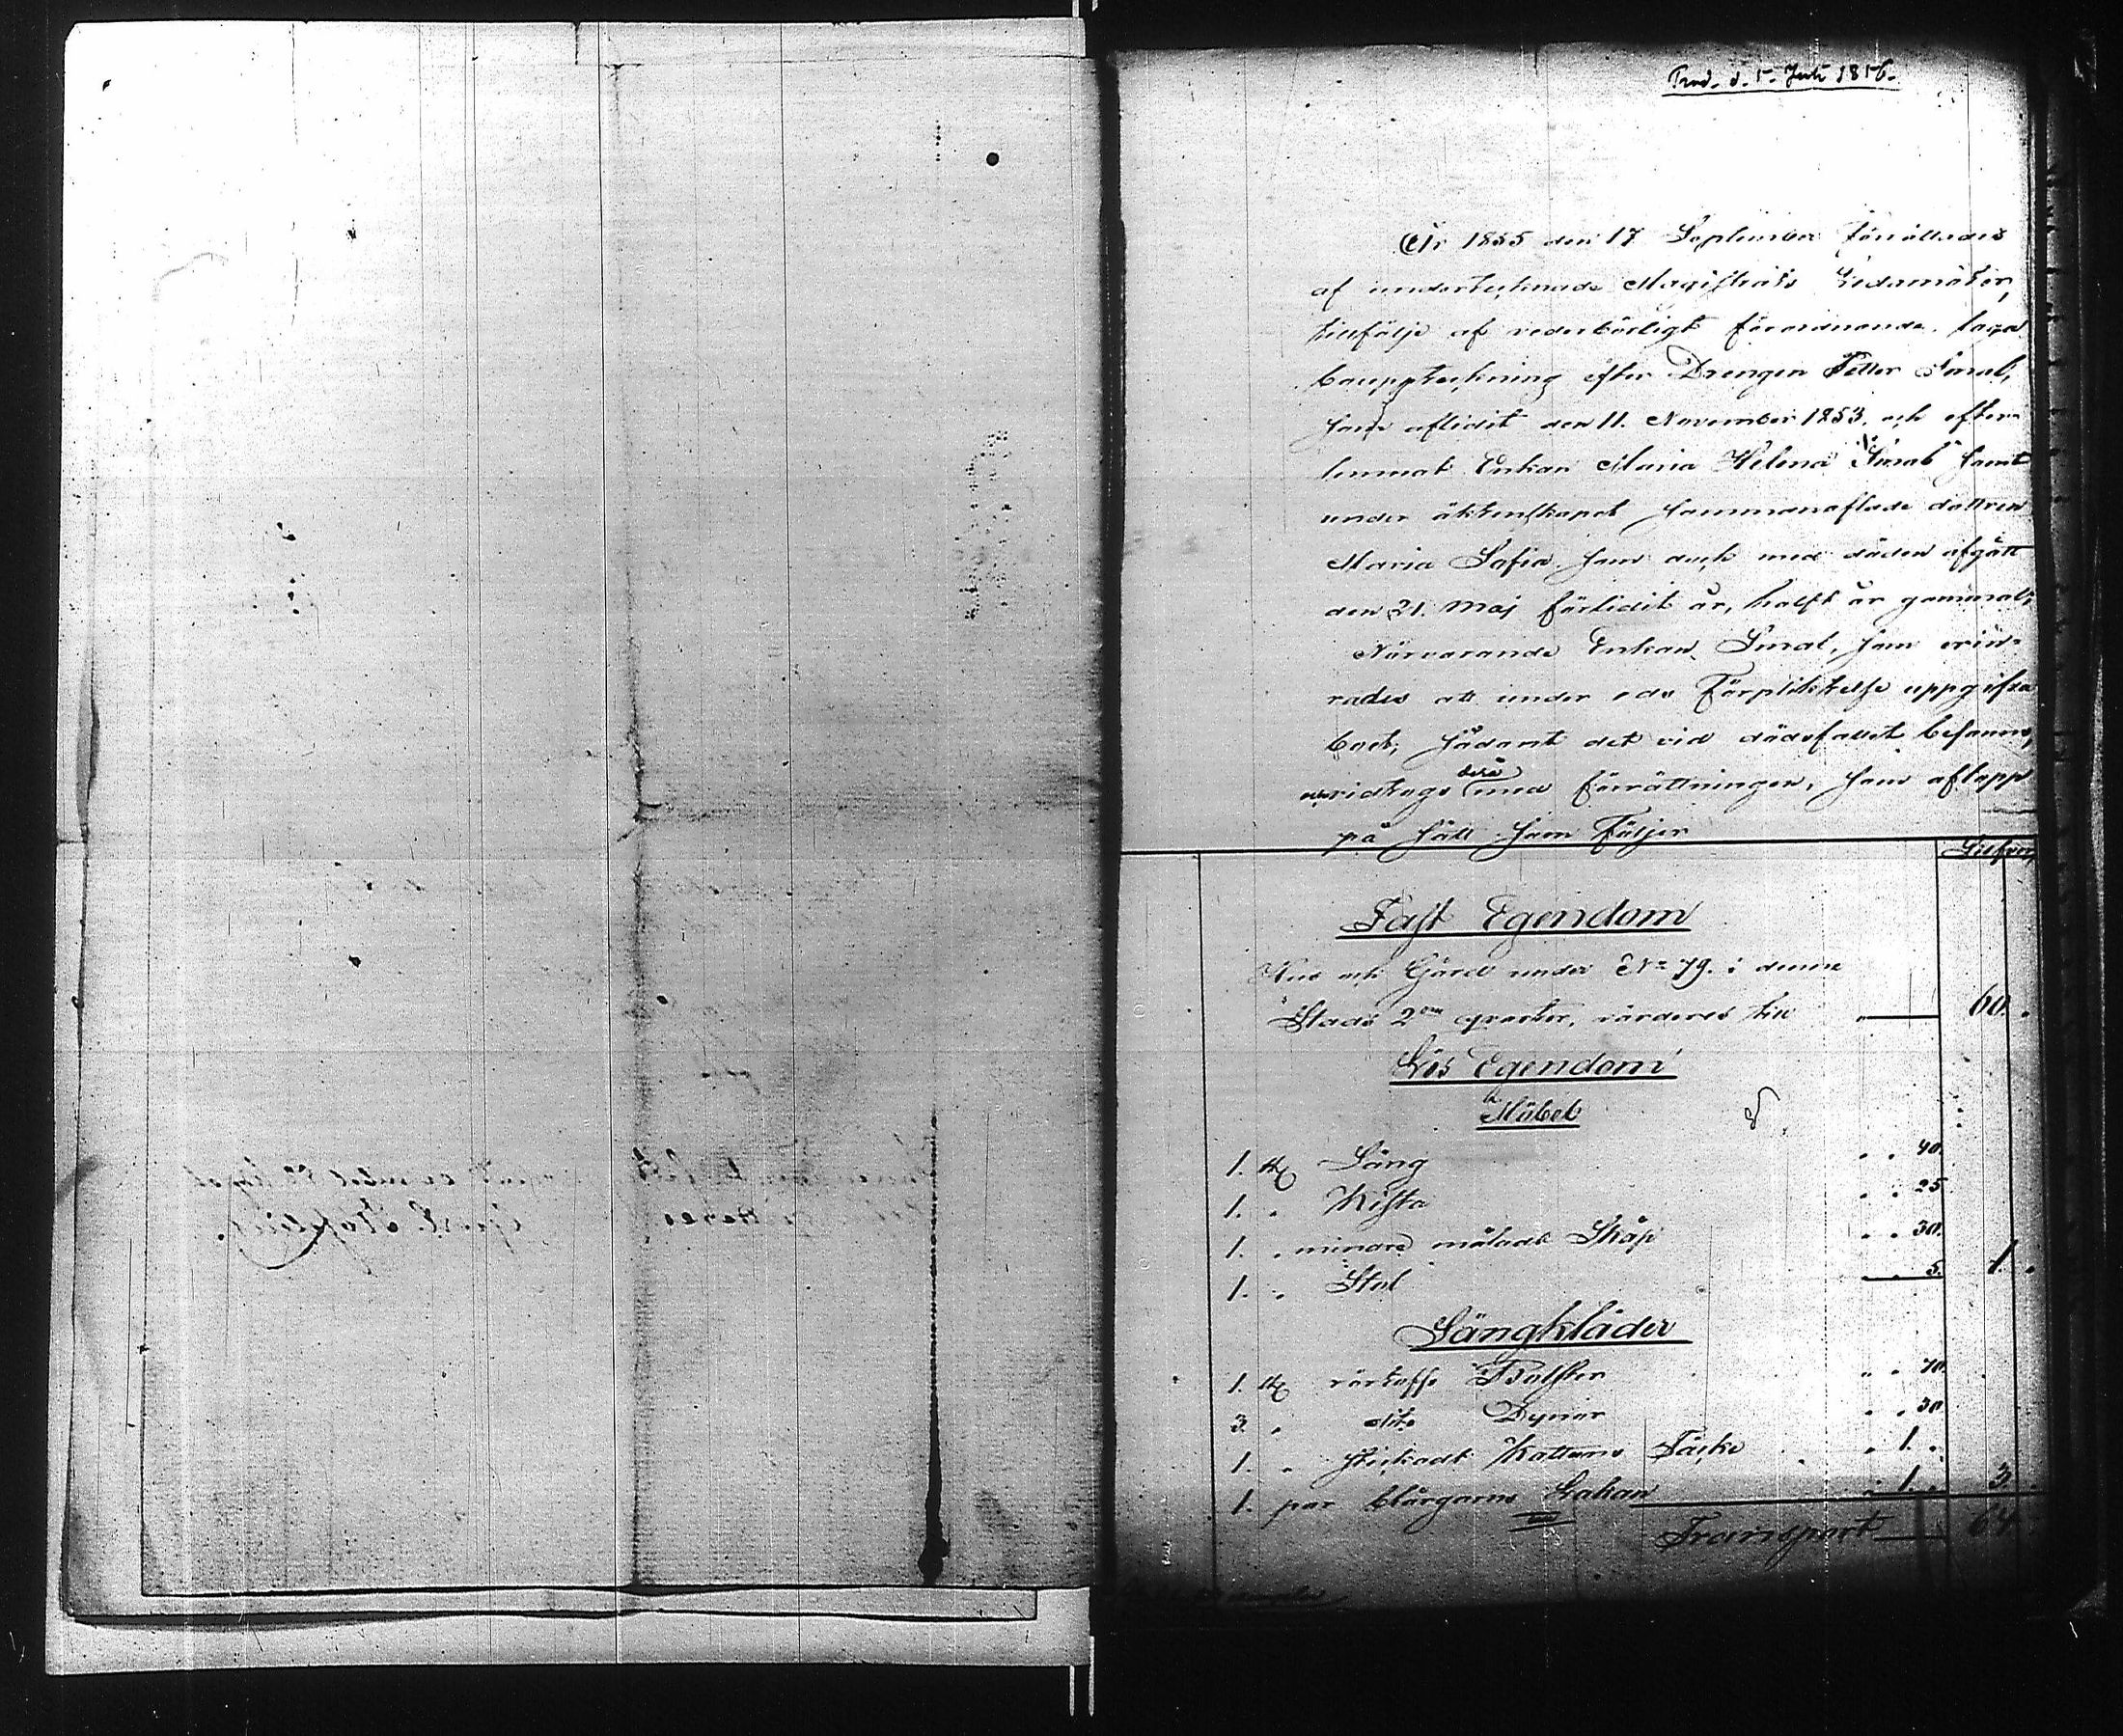 Prod. d. 5. Juli 1856.
År 1855 den 17 September förrättades
af undertecknade Magistrats Ledamöter,
tillfölje af vederbörligt förordnande laga
bouppteckning efter Drengen Petter
som aflidit den 11. November 1853. och efter-
lemnat Enkan Maria Helena samt
under äktenskapet sammanaflade dottren
Maria Sofia som ock med döden afgått
den 21. Maj förlidit år, halft år gammal;
Närvarande Enkan som erin-
rades att under eds förpliktelse uppgifva
boet, sådant det vid dödsfallet befanns,
vidtogs dera med förrättningen, som aflopp
på sätt som följer
Silfver
Fast Egendom
Hus och Gård under No 79. i denne
Stads 2dra qvarter, värderes till 60.
Lös Egendom
Möbel
1. st Säng " " 40.
1. " Kista " " 25
1. " mindre måladt Skåp " " 30.
1. " Stol " " 5. 1. "
Sängkläder
1. st Bolster " " 70.
3. " dito Dynor " " 30
1. " stickadt Kattuns Täcke " 1. "
1. par blårgarns Lakan " 1. " 3.
Transport 64